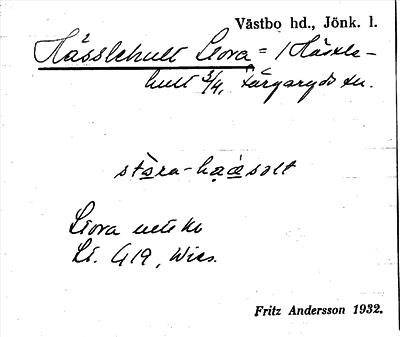 Västbo hd., Jönk. l.
Hässlehult Stora = / Hässle-
hult 3/4, Färgaryds sn.
stọra-hạ̈ssolt
Stora
Li. G19,
Fritz Andersson 1932.